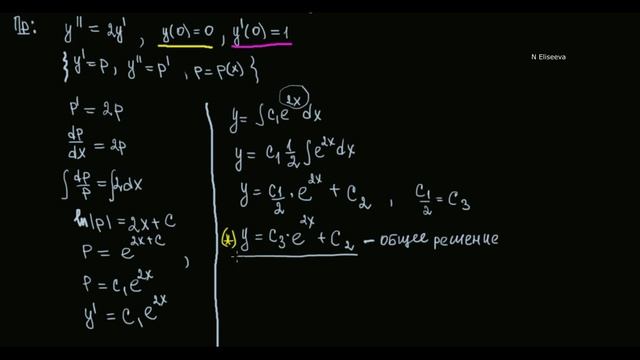 Пр: y'' = 2y' , y(0) = 0 , y'(0) = 1
{ y' = p, y'' = p' , p = p(x) }
N Eliseeva
p' = 2p
dp/dx = 2p
∫ dp/p = ∫ 2dx
ln|p| = 2x + C
p = e^{2x+C} ,
p = C₁e^{2x}
y' = C₁e^{2x}
y = ∫ C₁e^{2x} dx
y = C₁ 1/2 ∫ e^{2x} dx
y = C₁/2 · e^{2x} + C₂ , C₁/2 = C₃
(*) y = C₃ · e^{2x} + C₂ – общее решение